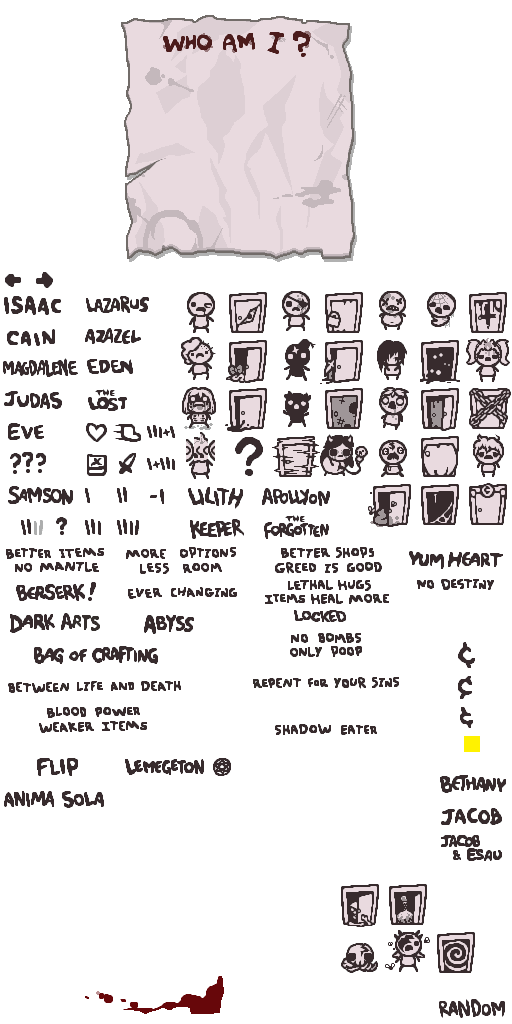 WHO AM I ?
ISAAC LAZARUS
CAIN AZAZEL
MAGDALENE EDEN
JUDAS THE LOST
EVE
???
?
SAMSON LILITH APOLLYON
? KEEPER THE FORGOTTEN
BETTER ITEMS
NO MANTLE
MORE OPTIONS
LESS ROOM
BETTER SHOPS
GREED IS GOOD
YUM HEART
BERSERK!
EVER CHANGING
LETHAL HUGS
ITEMS HEAL MORE
NO DESTINY
DARK ARTS
ABYSS
LOCKED
BAG OF CRAFTING
NO BOMBS
ONLY POOP
¢
BETWEEN LIFE AND DEATH
REPENT FOR YOUR SINS
¢
BLOOD POWER
WEAKER ITEMS
SHADOW EATER
¢
FLIP
LEMEGETON
BETHANY
ANIMA SOLA
JACOB
JACOB
& ESAU
RANDOM